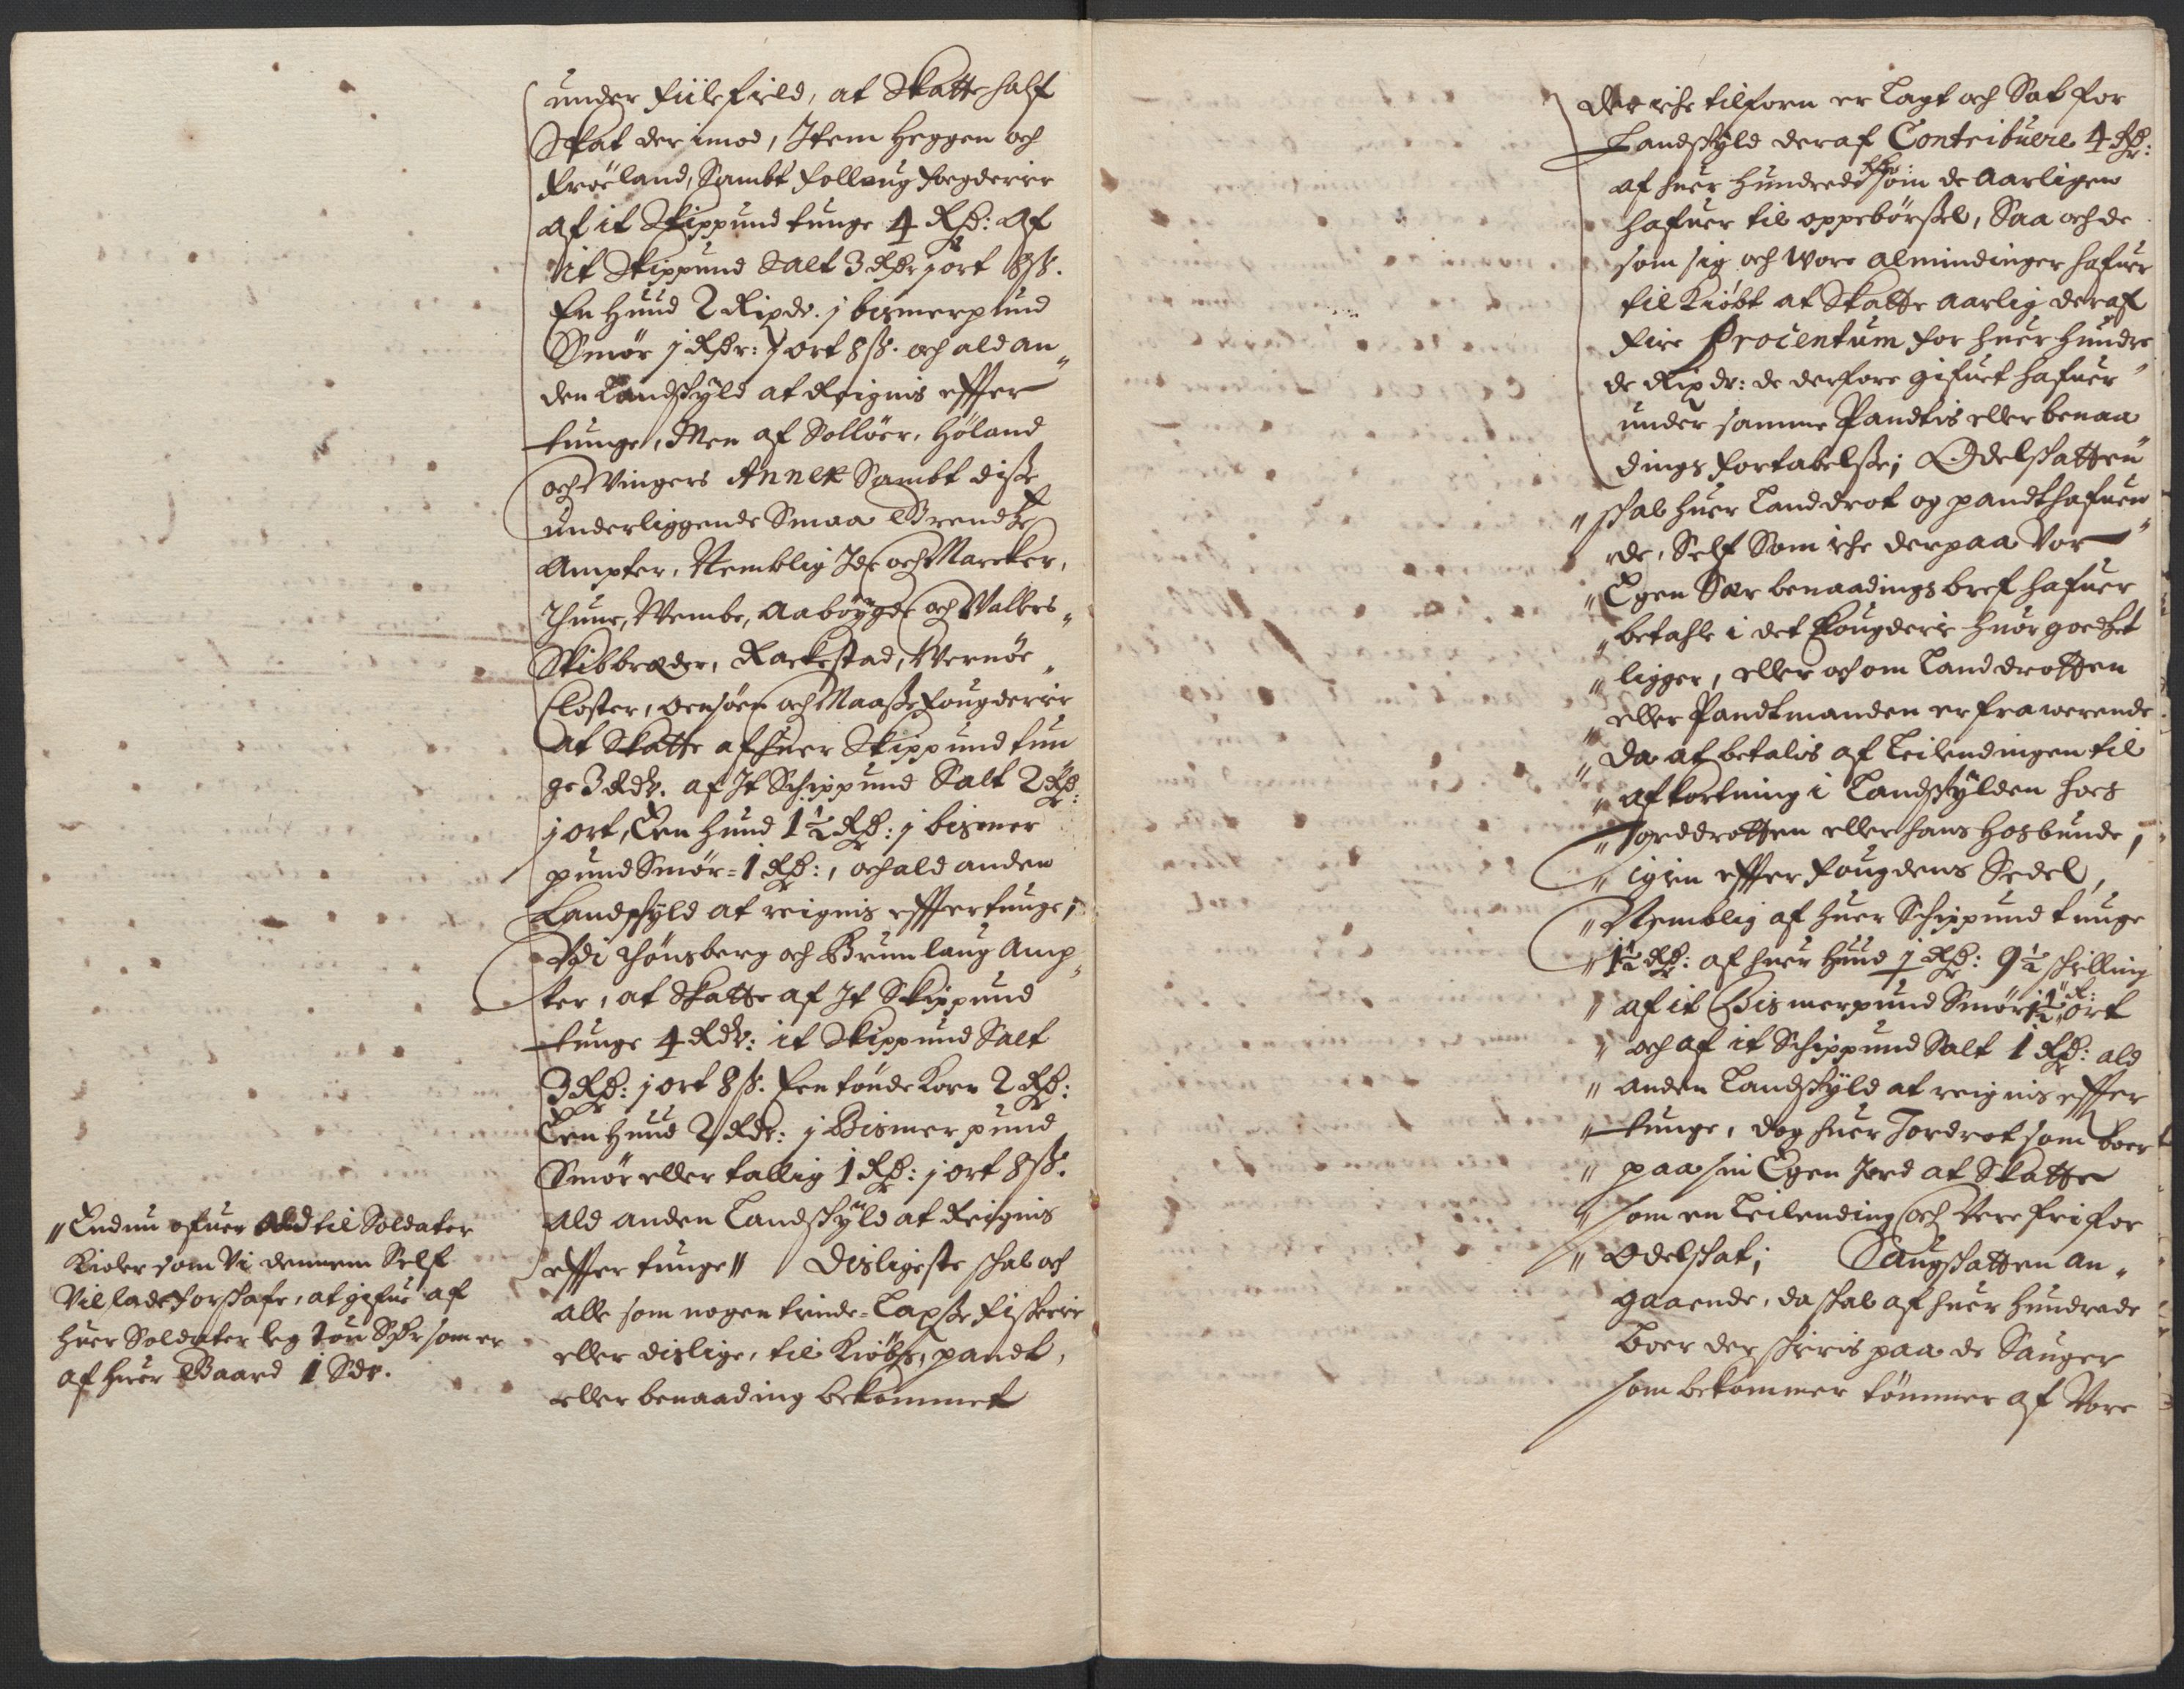 under Fiilefield, at Skatte half
Skat der imod, Item Heggen och
Frøeland, Sambt Folloug foegderier
af it Skippund tunge 4 Rdr: Af
it Skippund Salt 3 Rdr j ort 8 ß.
En Hund 2 Rixdr. j bismerpund
Smør j Rdr: j ort 8 ß. och ald an„
den Landskyld at Reignis effter
tunge, Men af Solløer, Høland
och Vingers Annex Sambt disse
underliggende Smaa
Ampter, Nemblig Ide och Marcker,
Thune, Vembe, Aabøygde och Valders„
Skibbreder, Rackestad, Vernøe
Closter, Onsøen och Maasse fougderier
At Skatte af huer Skippund tun
ge 3 Rdr. af It Schippund Salt 2 Rdr:
j ort, Een Hund 1½ Rdr: j bismer
pund Smør = 1 Rdr:, och ald anden
Landskyld at reignis effter tunge,
Udi Thønsberg och Brunlaug Amp„
ter, at Skatte af It Skippund
tunge 4 Rdr: it Skippund Salt
3 Rdr: j ort 8 ß. Een tønde Korn 2 Rdr:
Een Hund 2 Rdr: j Bismerpund
Smør eller tallig 1 Rdr: j ort 8 ß.
Ald anden Landskyld at Reignis
effter tunge // Desligeste skal och
alle som nogen tiinde-Laxse fiskerie
eller deslige, til Kiøbs, pandt,
eller benaading bekommet
„Endnu ofuer ald til Soldater
Kioler som Vi dennem Self
Vil lade forskafe, at gifue af
huer Soldater leg tou Sdr som er
af huer Gaard 1 Sdr.
der iche tilforn er Lagt och Sat for
Landskyld deraf Contribuere 4 Rdr:
af huer Hundrede Rdr som de Aarligen
hafuer til oppebørsel, Saa och de
som sig och Vore almindinger hafuer
til Kiøbt at Skatte Aarlig deraf
Fire Procentum for huer hundre
de Rixdr: de derfore gifuet hafuer
under samme Pandtis eller benaa
dings fortabelse; Odelskatten
„skal huer Landdrot og pandthafuen
„de, Self Som iche derpaa Vor
„Egen Sær benaadings bref hafuer
„betahle i det Fougderie huor goedset
„ligger, eller och om Landdrotten
„eller Pandtmanden er fraverende
„Da at betalis af Leilendingen til
„afkortning i Landskylden hoes
„Jorddrotten eller hans Hosbunde,
„igien effter Fougdens Sedel,
„Nemblig af huer Schippund tunge
„1½ Rdr: af huer Hund j Rdr: 9½ skilling
„af it Bismerpund Smør 1½ ort
„och af it Schippund Salt 1 Rdr: ald
„anden Landskyld at reignis effter
„tunge, dog huer Jordrot som boer
„paa sin Egen Jord at Skatte
„som en Leilending och Vere fri for
„Odelskat; Saugskatten an„
gaaende, da skal af huer hundrede
boer der skieris paa de Sauger
som bekommer tømmer af Vore